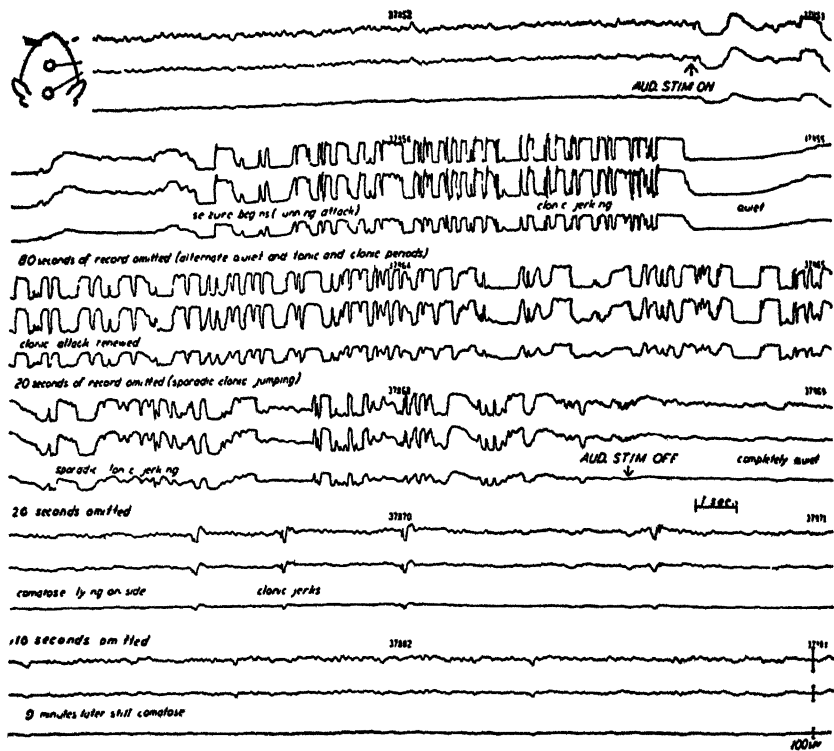 37852 37853
AUD. STIM ON
37854 37855
seizure begins (running attack) clonic jerking quiet
80 seconds of record omitted (alternate quiet and tonic and clonic periods)
37864 37865
clonic attack renewed
20 seconds of record omitted (sporadic clonic jumping)
37868 37869
sporadic clonic jerking AUD. STIM OFF completely quiet
1 sec.
20 seconds omitted
37870 37871
comatose lying on side clonic jerks
110 seconds omitted
37882
9 minutes later still comatose
100uv